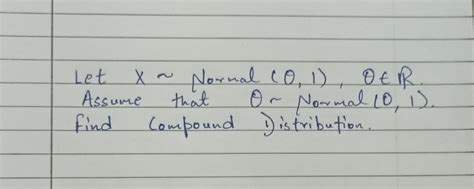 Let X ~ Normal (θ, 1), θ ∈ ℝ.
Assume that θ ~ Normal (0, 1).
Find Compound Distribution.